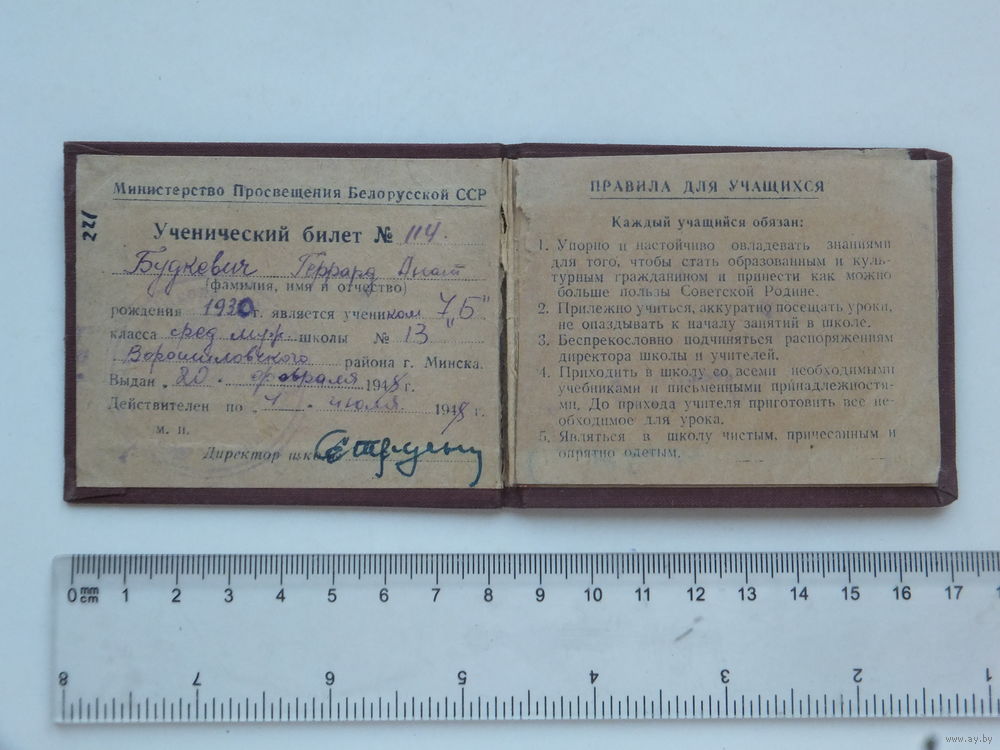 221
Министерство Просвещения Белорусской ССР
Ученический билет № 114.
Будкевич Геррард Анат
(фамилия, имя и отчество)
рождения 1930 г. является учеником 7 „Б"
класса сред муж школы № 13
Ворошиловского района г. Минска.
Выдан „20 . февраля 1948 г.
Действителен по „1 . июля 1948 г.
м. п.
Директор школы
ПРАВИЛА ДЛЯ УЧАЩИХСЯ
Каждый учащийся обязан:
1. Упорно и настойчиво овладевать знаниями
для того, чтобы стать образованным и куль-
турным гражданином и принести как можно
больше пользы Советской Родине.
2. Прилежно учиться, аккуратно посещать уроки,
не опаздывать к началу занятий в школе.
3. Беспрекословно подчиняться распоряжениям
директора школы и учителей.
4. Приходить в школу со всеми необходимыми
учебниками и письменными принадлежностя-
ми. До прихода учителя приготовить все не-
обходимое для урока.
5. Являться в школу чистым, причесанным и
опрятно одетым.
0 mm 1 2 3 4 5 6 7 8 9 10 11 12 13 14 15 16 17
cm
8 7 6 5 4 3 2 1
www.ay.by